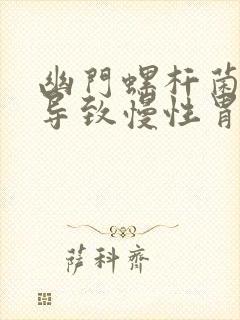 幽門螺杆菌
导致慢性胃
萨科齐